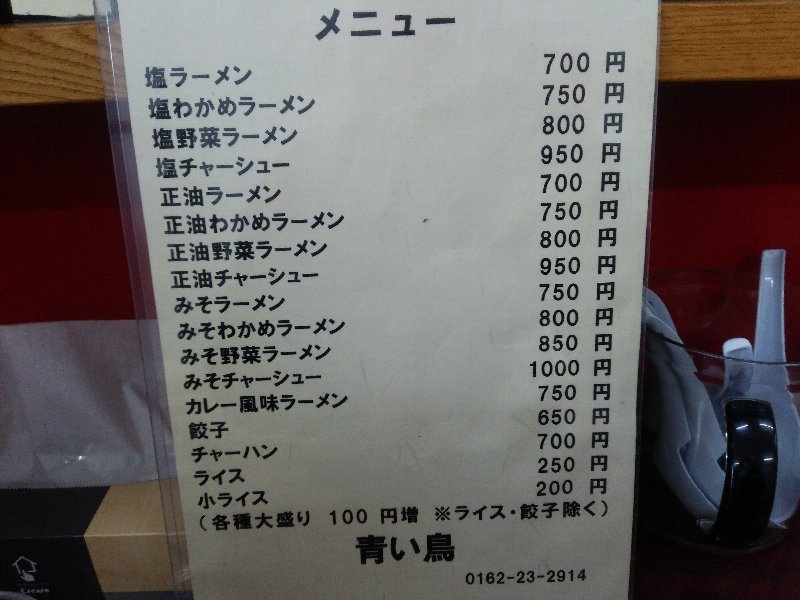 メニュー
塩ラーメン 700 円
塩わかめラーメン 750 円
塩野菜ラーメン 800 円
塩チャーシュー 950 円
正油ラーメン 700 円
正油わかめラーメン 750 円
正油野菜ラーメン 800 円
正油チャーシュー 950 円
みそラーメン 750 円
みそわかめラーメン 800 円
みそ野菜ラーメン 850 円
みそチャーシュー 1000 円
カレー風味ラーメン 750 円
餃子 650 円
チャーハン 700 円
ライス 250 円
小ライス 200 円
(各種大盛り 100 円増 ※ライス・餃子除く)
青い鳥
0162-23-2914
Create